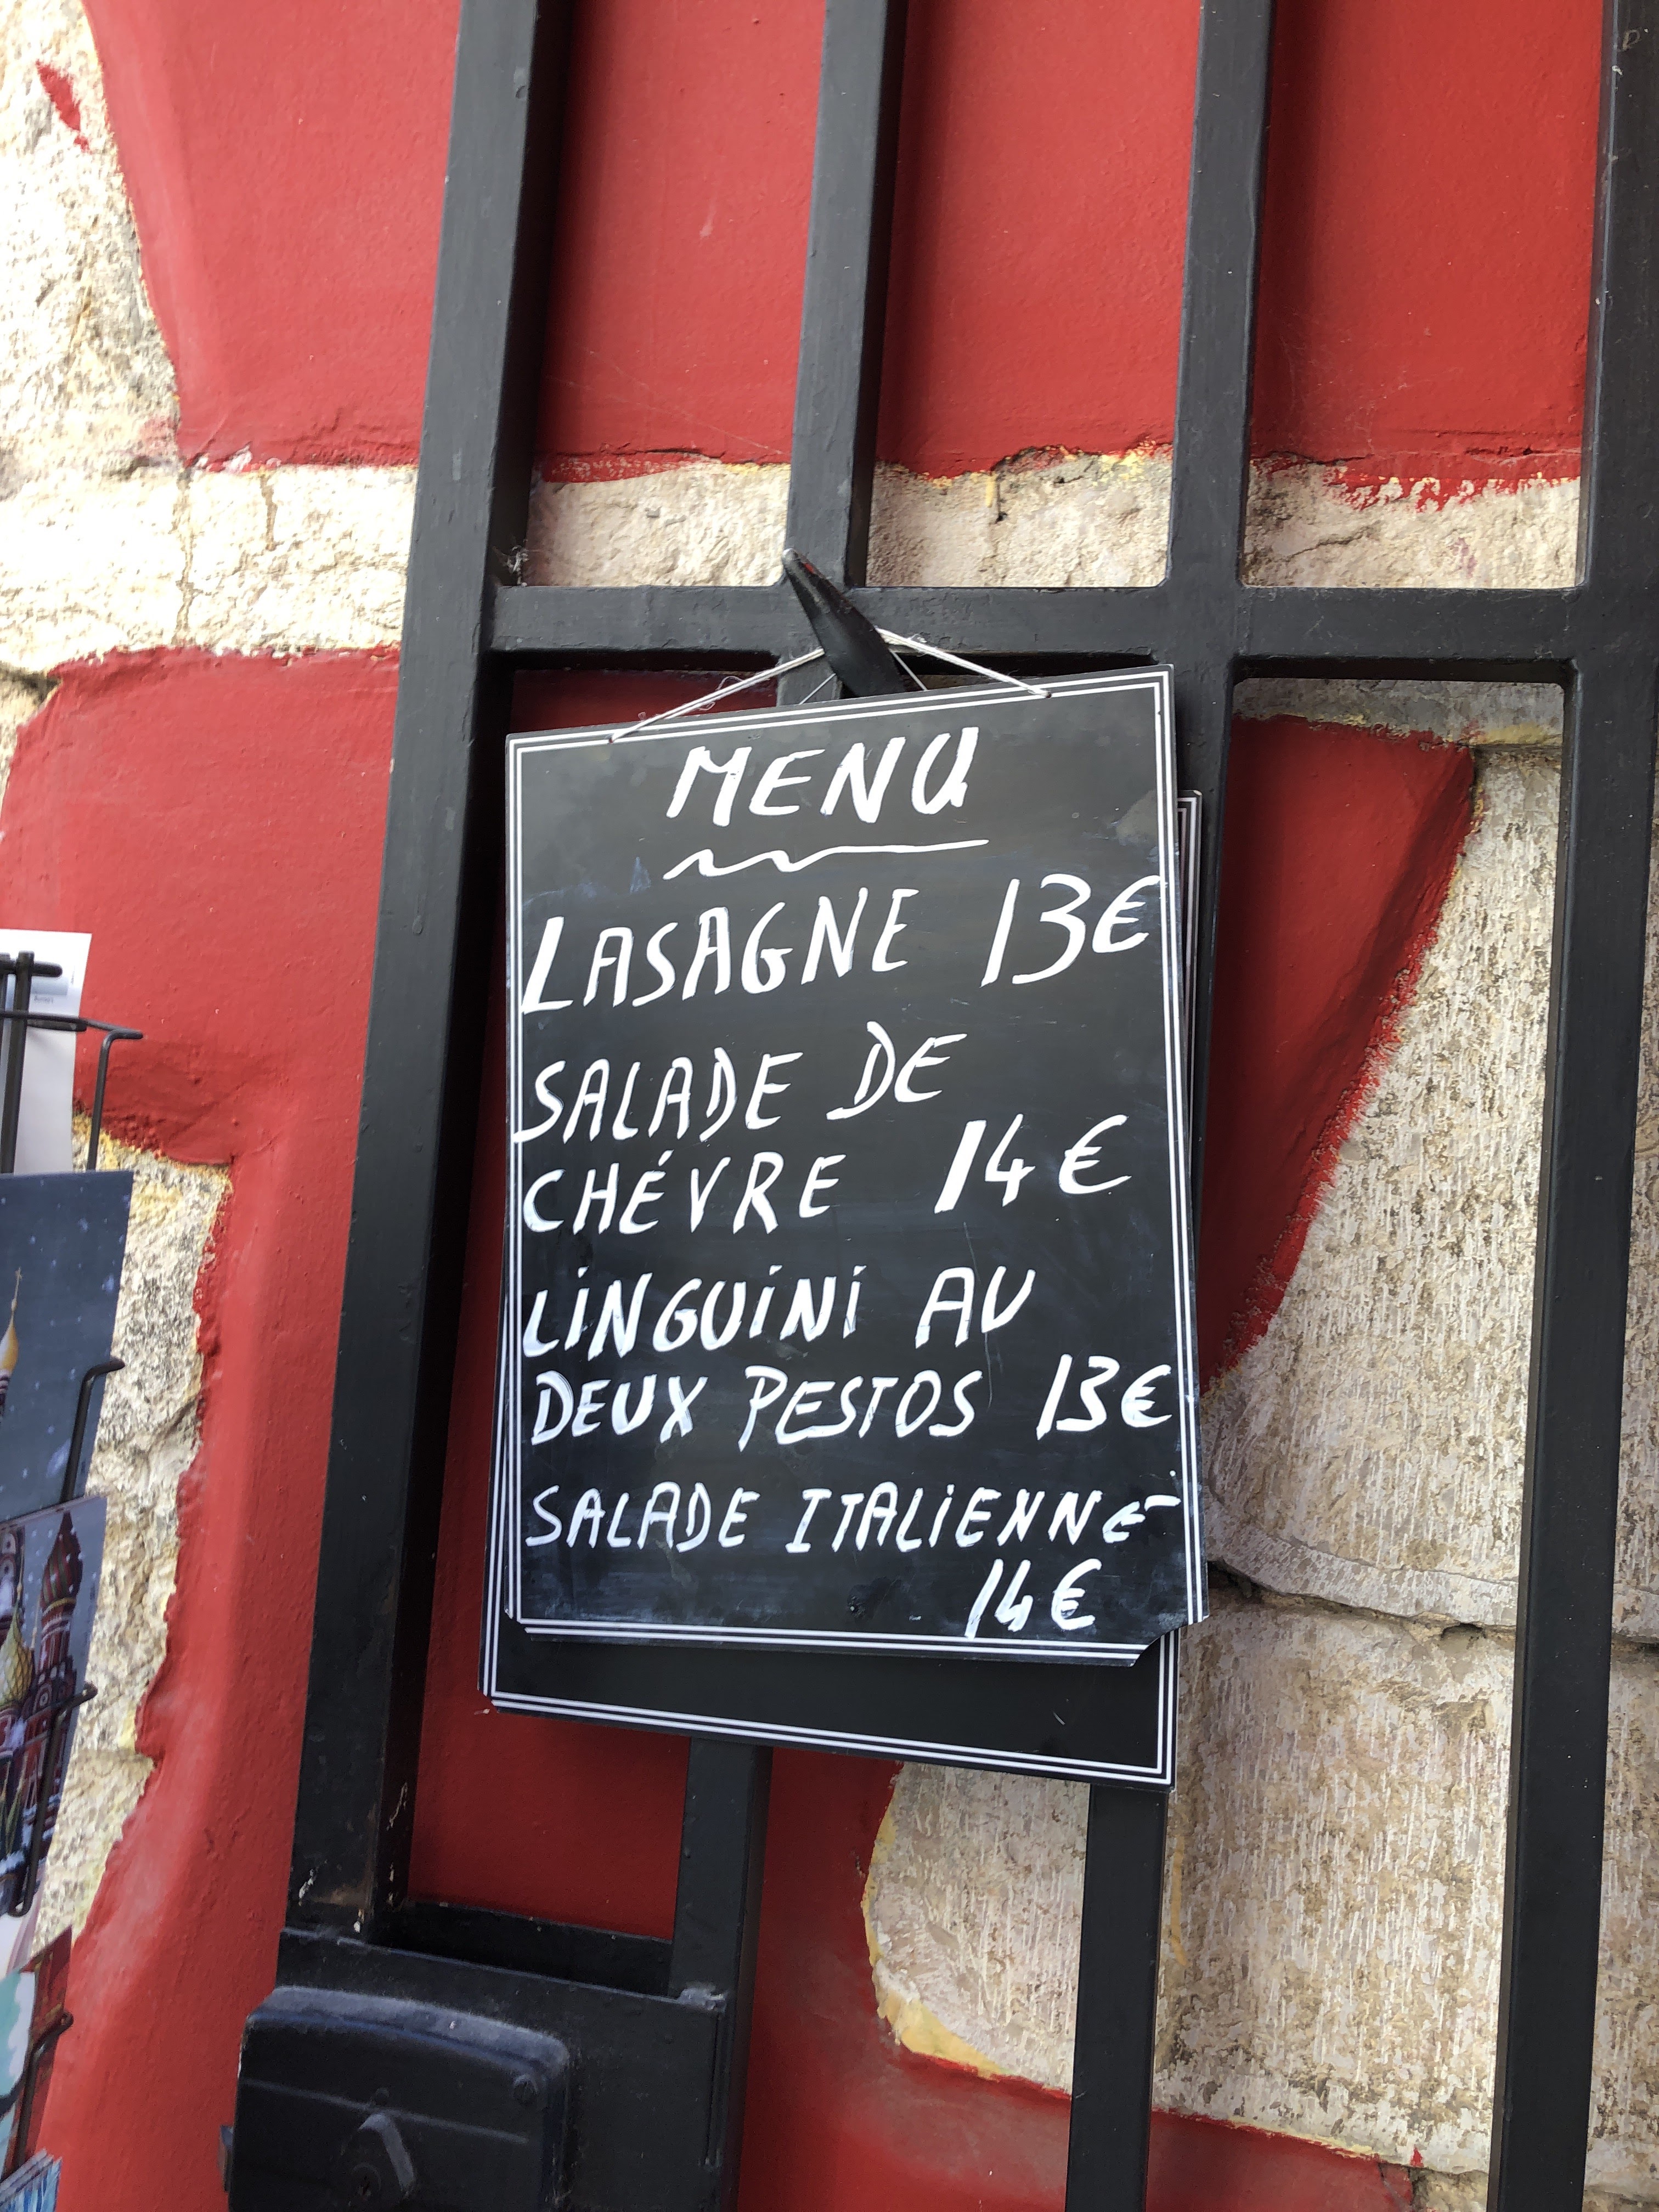 MENU
LASAGNE 13€
SALADE DE
CHÉVRE 14€
LINGUINI AU
DEUX PESTOS 13€
SALADE ITALIENNE
14€